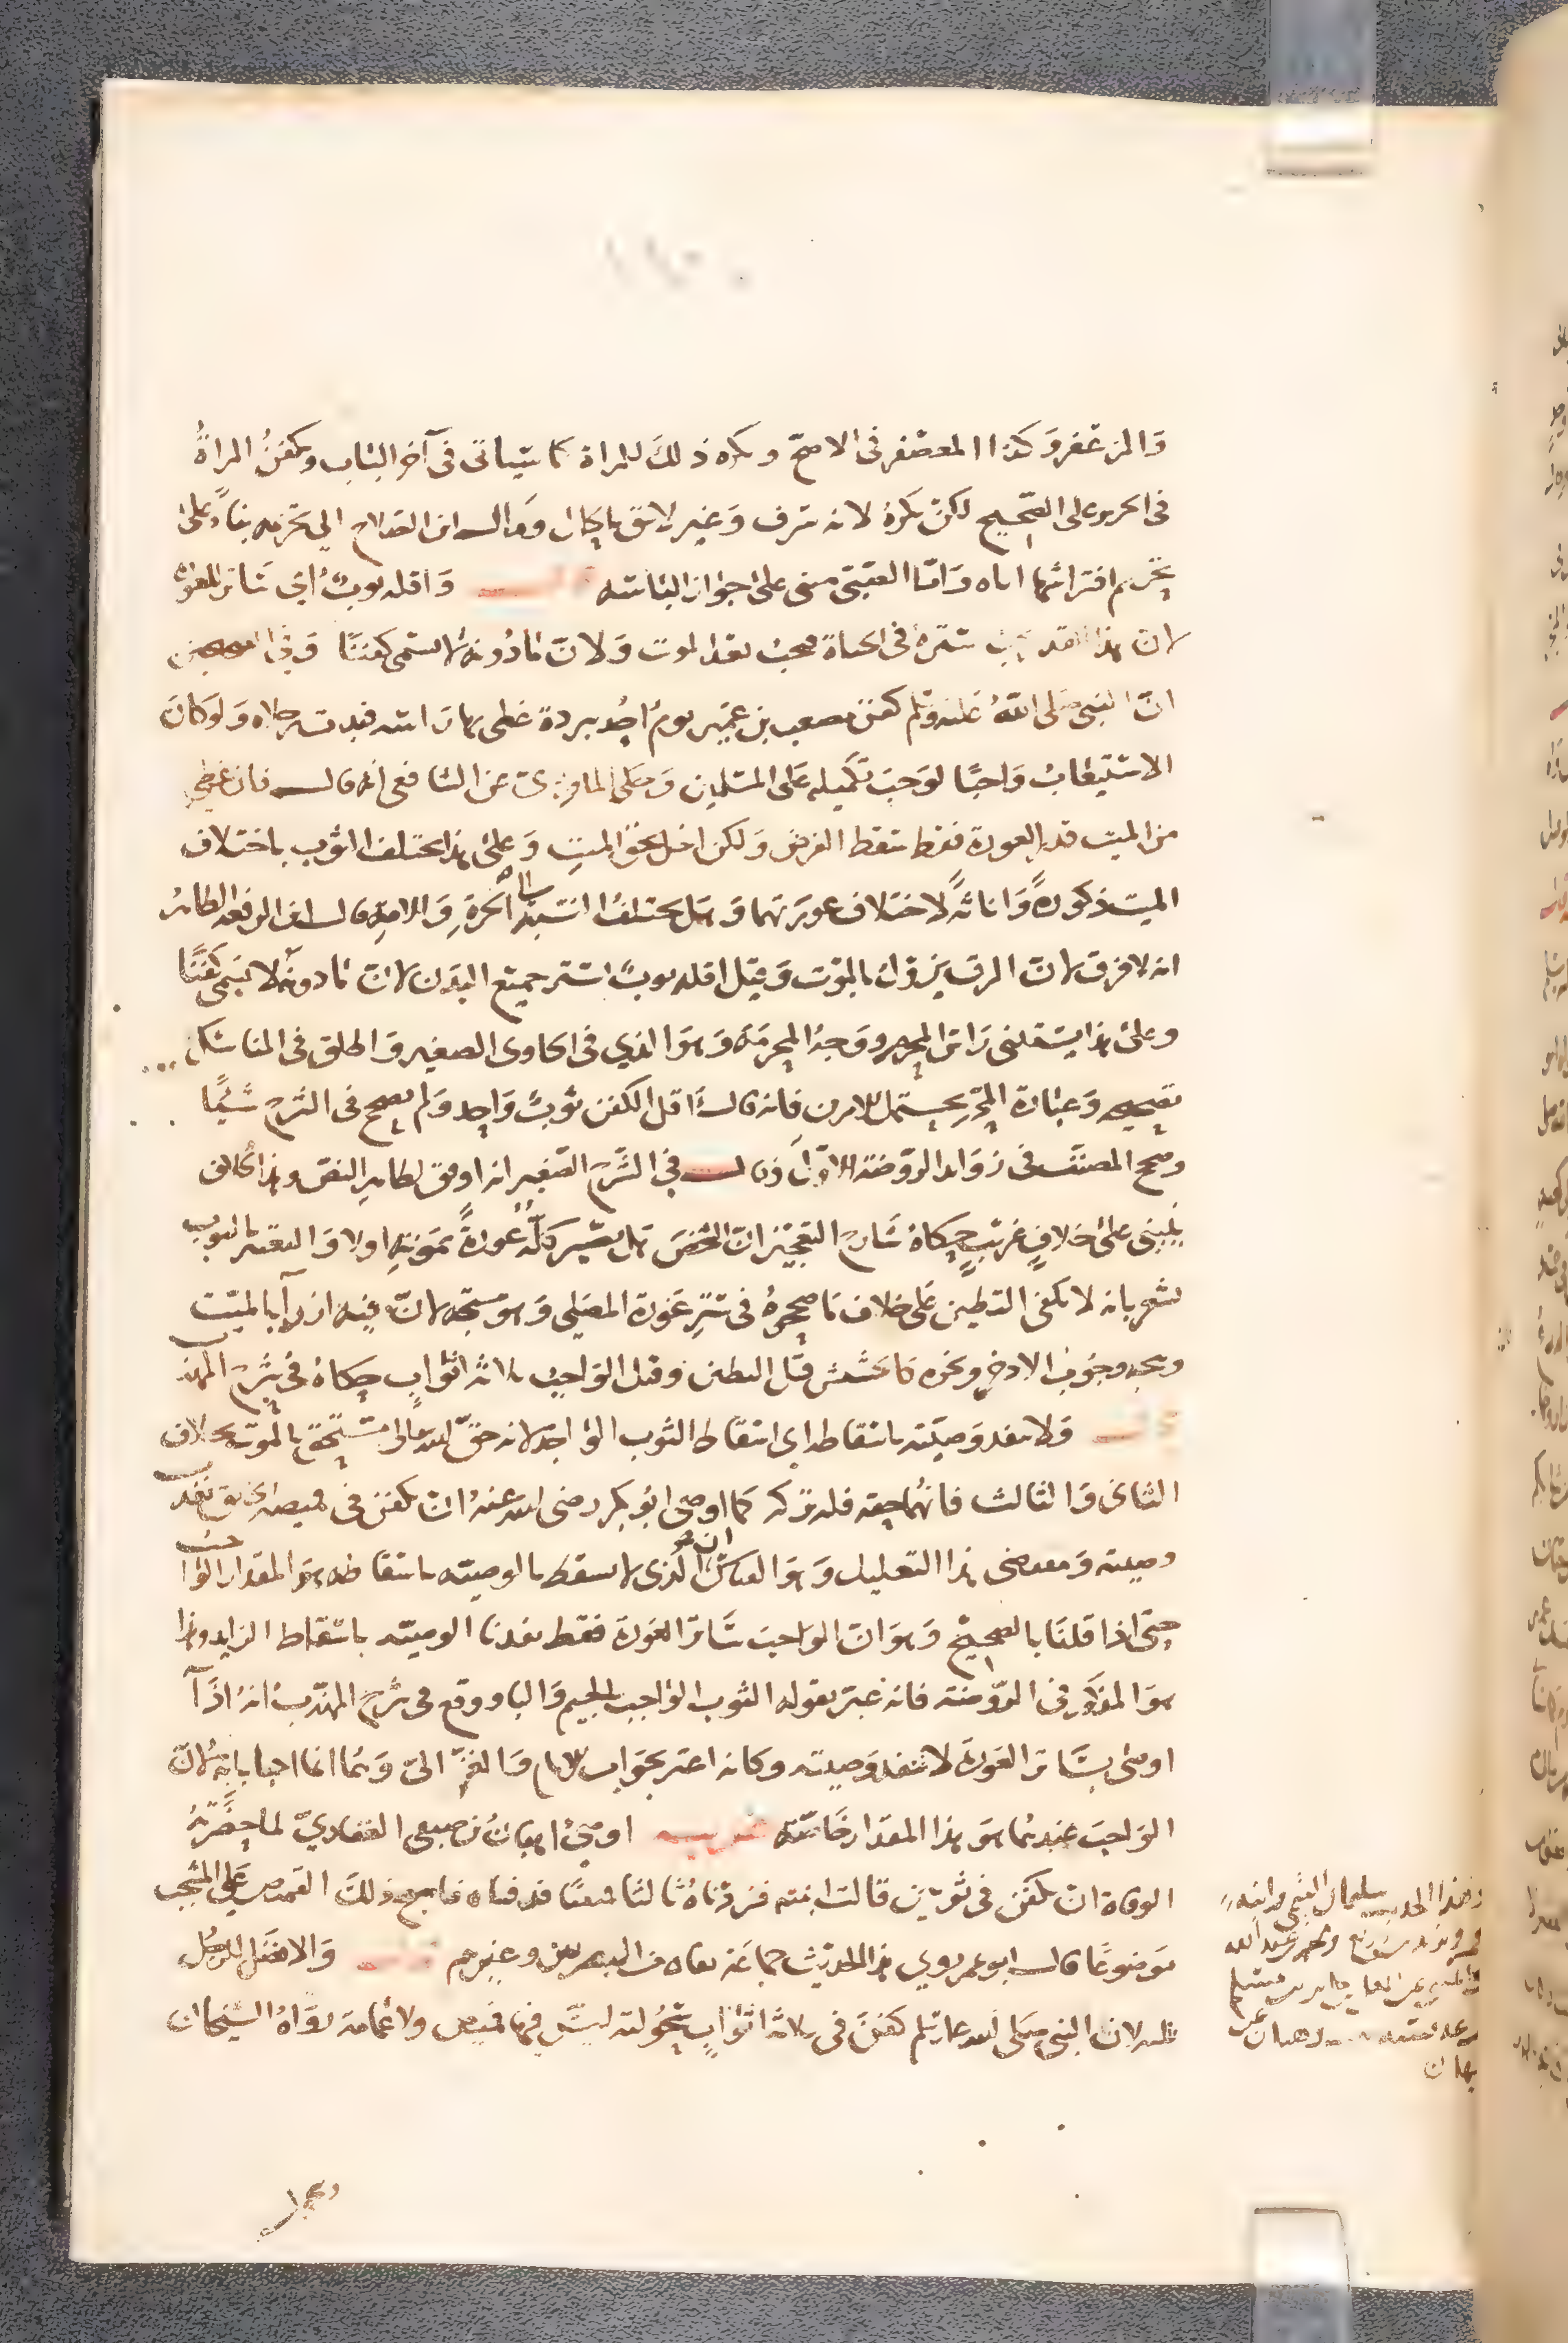 والمزعفر وكذا المعصفر في الاصح ويكره ذلك للمراة كما سياتي في آخر الباب وتكفن المراة
في الحرير على الصحيح لكن يكره لانه سرف وغير لائق بالحال ومال ابن الصلاح الي تحريمه بناء على
تحريم افتراشها اياه واما القيتي مبني على جواز الباسه قال واقله ثوب اي ساتر للعورة
لان هذا القدر يجب ستره في الحياة فيجب بعد الموت ولان ما دونه لا يسمى كفنا وفي الصحيحين
ان النبي صلى الله عليه وسلم كفن مصعب بن عمير يوم احد ببردة غطى بها راسه فبدت رجلاه ولو كان
الاستيعاب واجبا لوجب تكميله على المسلمين وحكى الماوردي عن الشافعي انه قال فان غطي
من الميت قدر العورة فقط سقط الفرض ولكن اخل بحق الميت وعلى هذا يختلف الثوب باختلاف
الميت ذكورة واناثة لاختلاف عورتهما وهل يختلف بالنسبة الى الحرة والامة قال ابن الرفعة الظاهر
انه لا فرق لان الرق يزول بالموت وقيل اقله ثوب استر جميع البدن لان ما دونه لا يسمى كفنا
وعلى هذا يستثنى راس المحرم ووجه المحرمة وهو الذي في الحاوي الصغير والحلق في المناسك
تصحيحه وعبارة المحرر يحتمل الامرين فانه قال اقل الكفن ثوب واحد ولم يصحح في الشرح شيئا
وصحح المصنف في زوايد الروضة الاول وقال في الشرح الصغير انه اوفق لظاهر النص وهذا الخلاف
يبنى على خلاف غريب حكاه شارح التعجيز ان الشخص هل يصير كله عورة بموته اولا والتعبير بالثوب
يشعر بانه لا يكفي التطيين على خلاف ما صححوه في ستر عورة المصلي وهو متجه لان فيه ازراء بالميت
ويجب وجوب الاذخر ونحوه كالحشيش قبل التطيين وقيل الواجب ثلاثة اثواب حكاه في شرح المهذب
قال ولا تنفذ وصيته باسقاطه اي اسقاط الثوب الواحد لانه حق لله تعالى مستحق بالموت بخلاف
الثاني والثالث فانهما حقه فله تركه كما اوصى ابو بكر رضى الله عنه ان يكفن في قميصه الخلق تنفذت
وصيته ومقتضى هذا التعليل وهو القياس ان الذي لا يسقط بالوصية باسقاطه هو المقدار الواجب
حتى اذا قلنا بالصحيح وهو ان الواجب ساتر العورة فقط نفذنا الوصية باسقاط الزايد وهذا
هو المذكور في الروضة فانه عبر بقوله الثوب الواجب بالجيم والباء ووقع في شرح المهذب انه اذا
اوصى بساتر العورة لا تنفذ وصيته وكانه اغتر بجواب الامام والغزالي وهما انما اجابا به لان
الواجب عندهما هو هذا المقدار خاصة غريبه اوصى اهبان بن صيفي الغفاري لما حضرته
الوفاة ان يكفن في ثوبين قالت ابنته فزدناه ثالثا قميصا فدفناه فاصبح ذلك القميص على المشجب
موضوعا قال ابو عمر روي هذا الحديث جماعة ثقات من البصريين وغيرهم قال والافضل للرجل
ثلاثة لان النبي صلى الله عليه وسلم كفن في ثلاثة اثواب سحولية ليس فيها قميص ولا عمامة رواه الشيخان
وهذا الحديث سليمان التيمي وابنه
ومحمد بن عبد الله
عن